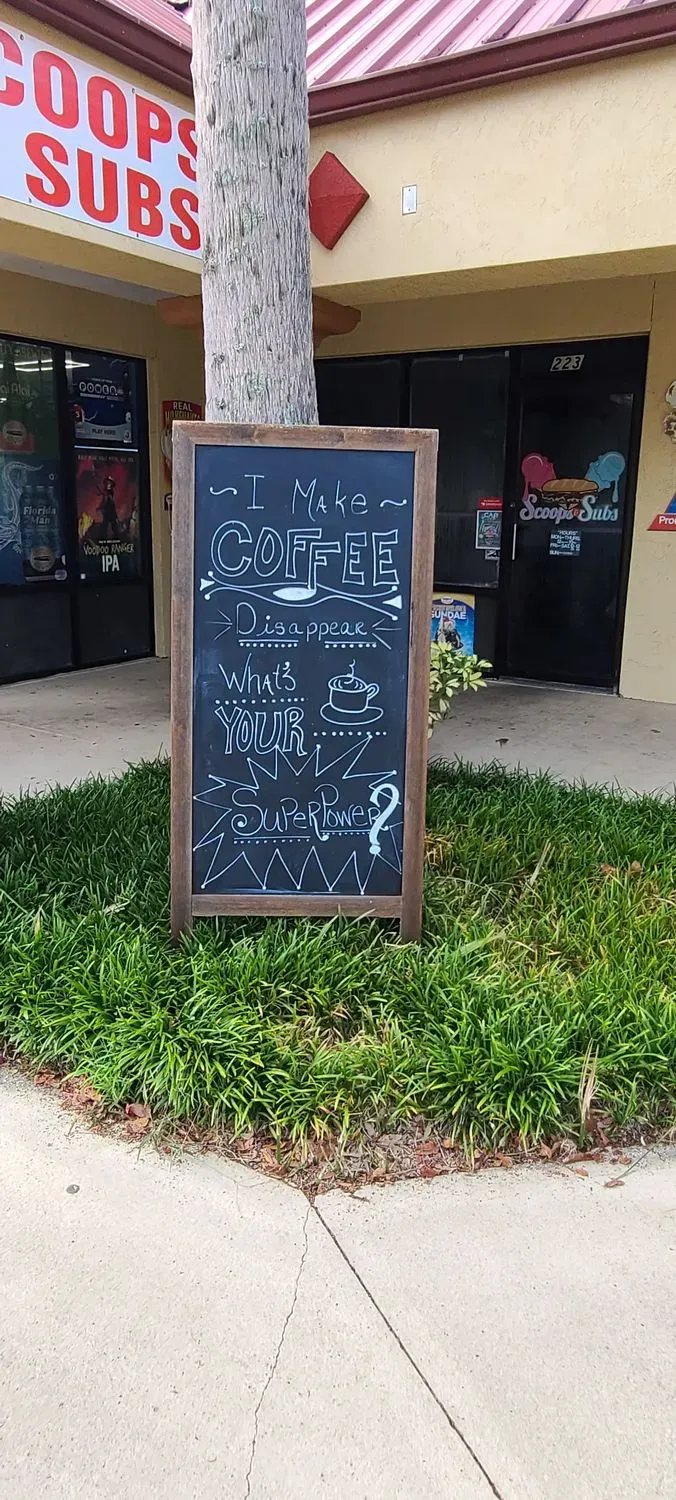 COOPS
SUBS
POWER
PLAY HERE
REAL
Florida
Man
VOODOO RANGER
IPA
223
Scoops & Subs
HOURS
MON-THURS
SUNDAE
~ I Make ~
COFFEE
Disappear
What's
YOUR
SuperPower?